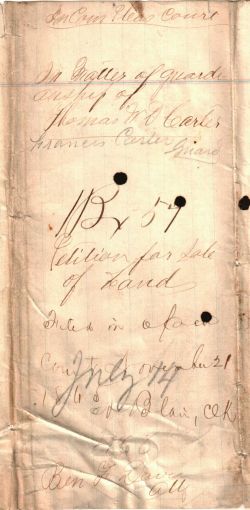 In Com Pleas Court
In Matter of guardi
anship of
Thomas F O Carter
Francis Carter Guard
Bx 57
Petition for Sale
of Land
Filed in open
Court November 21
July 14
Blair, Clk
Ben T
Atty